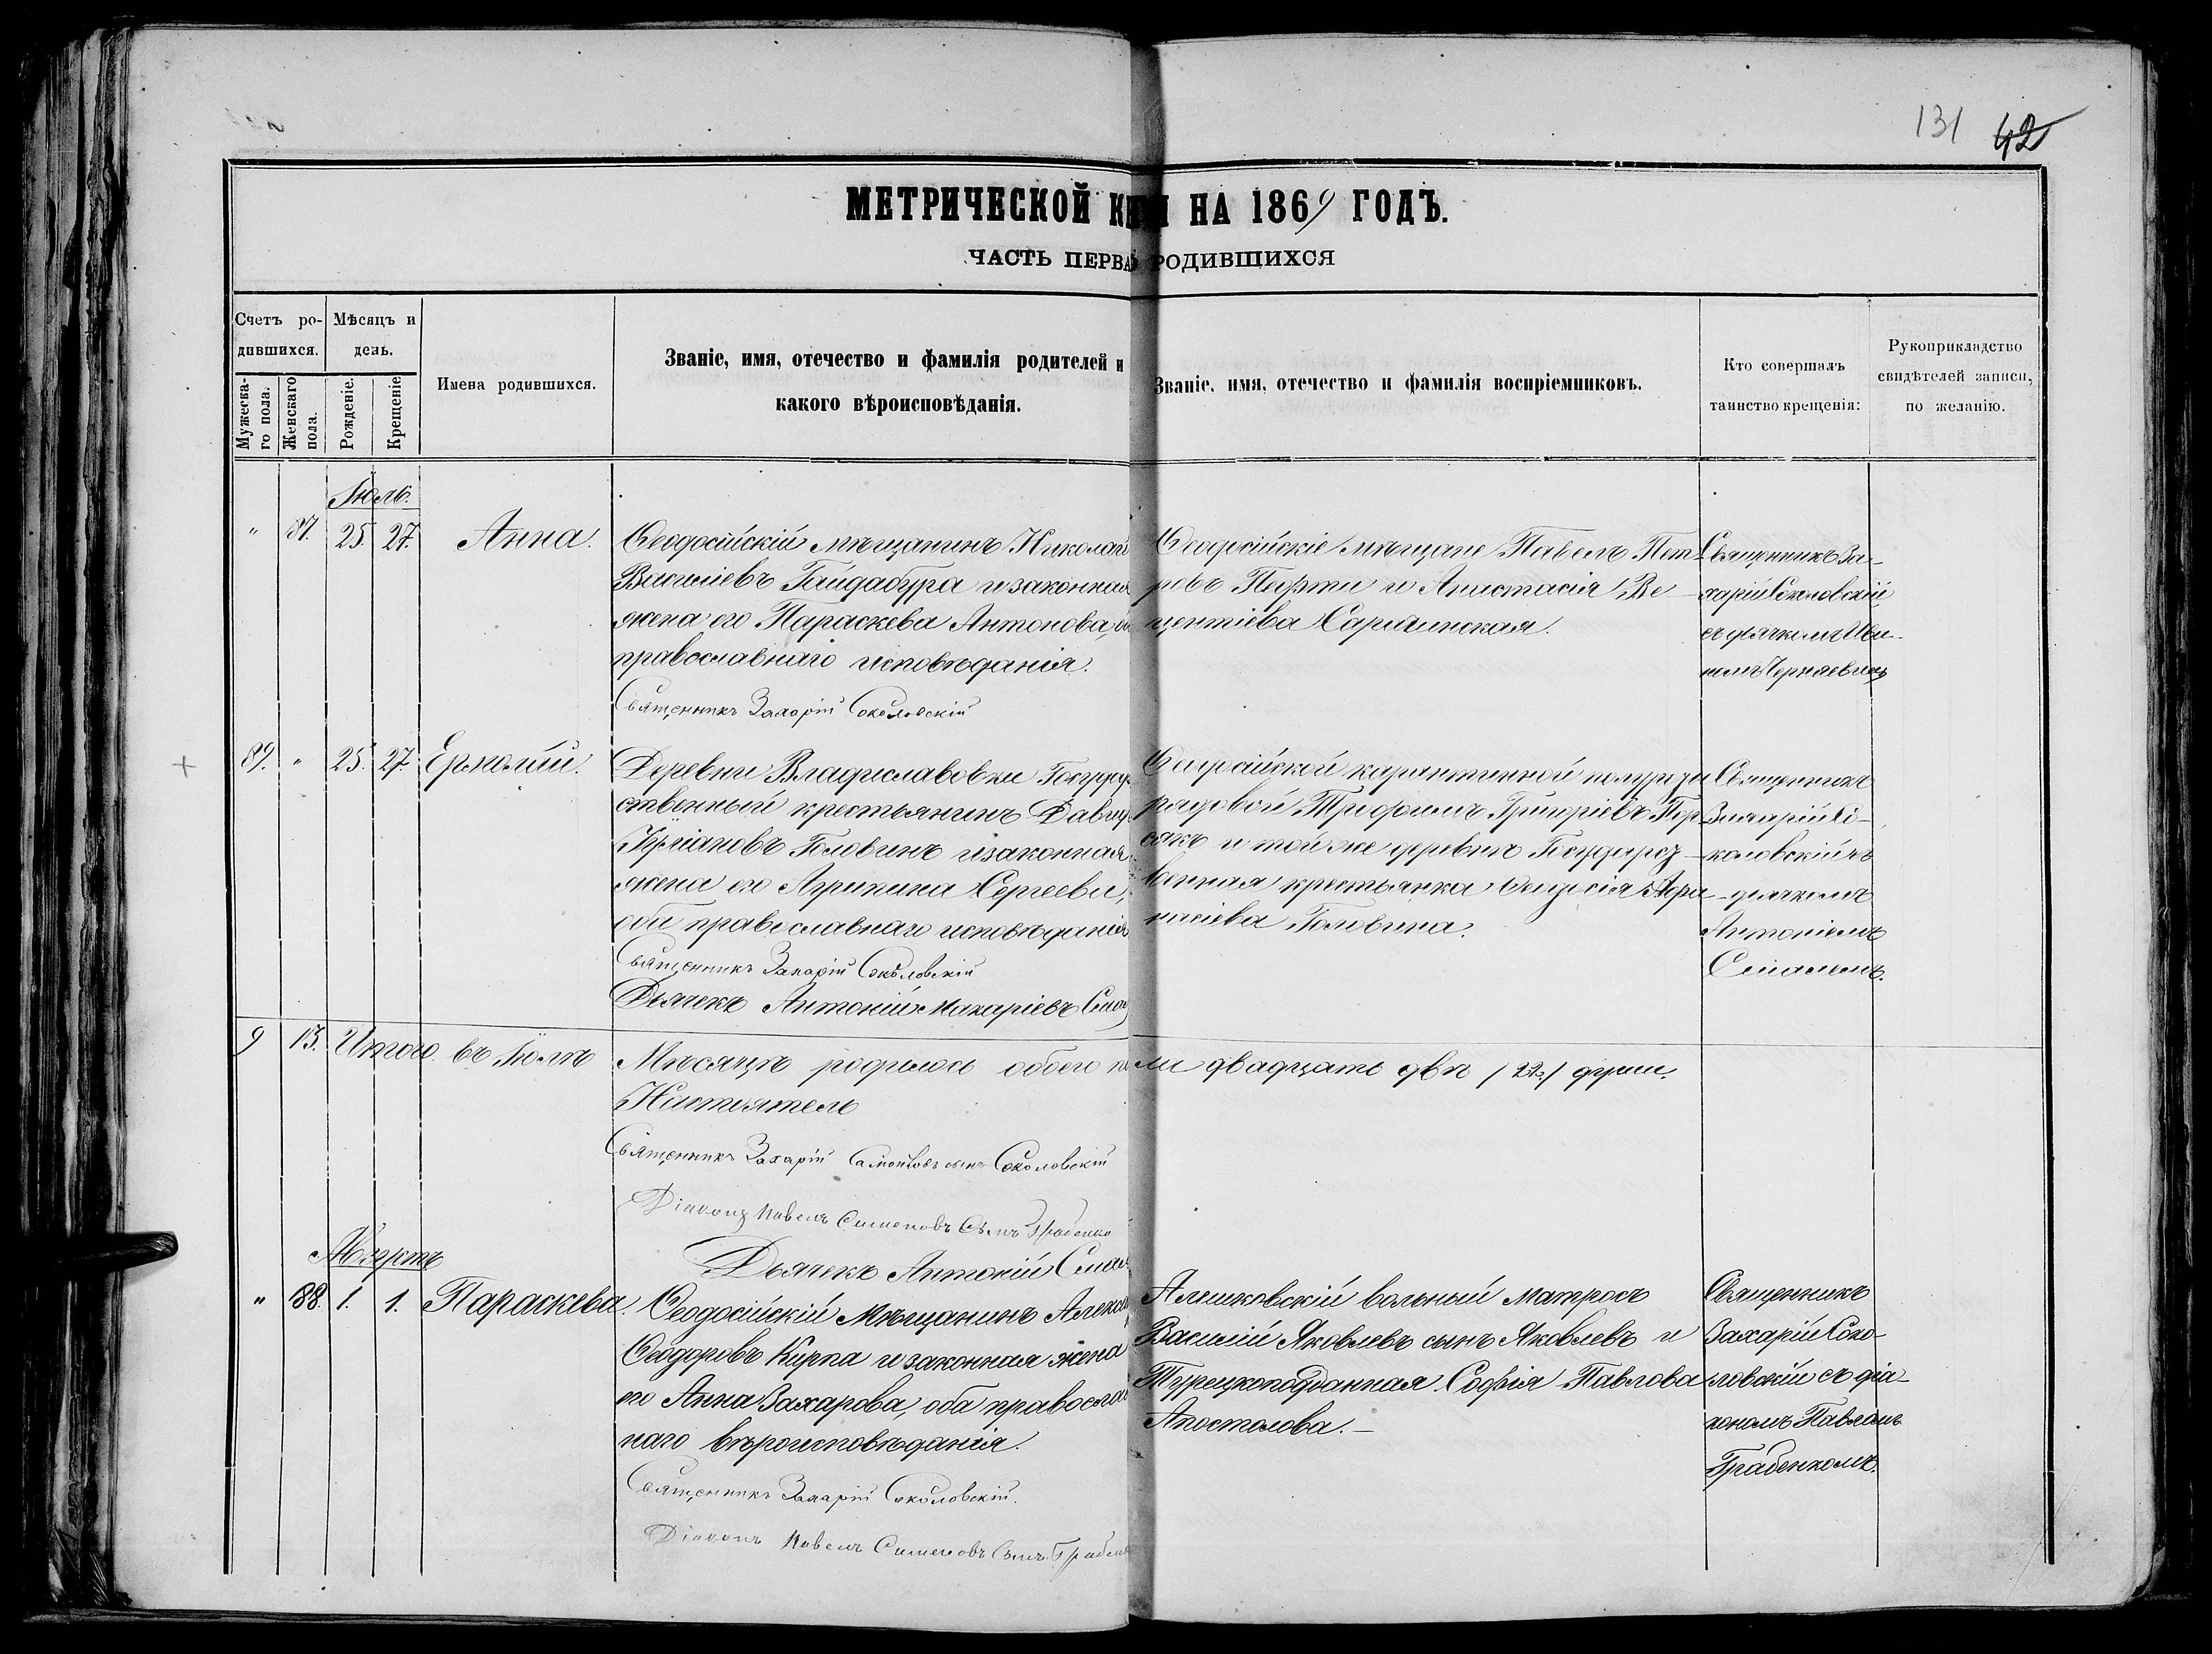 131 42
МЕТРИЧЕСКОЙ КНИ НА 1869 ГОДЪ.
ЧАСТЬ ПЕРВА РОДИВШИХСЯ
Счетъ ро-
дившихся.
Мѣсяцъ и
день.
Мужеска-
го пола.
Женскаго
пола.
Рожденіе.
Крещеніе
Имена родившихся.
Званіе, имя, отечество и фамилія родителей и
какого вѣроисповѣданія.
Званіе, имя, отечество и фамилія воспріемниковъ.
Кто совершалъ
таинство крещенія:
Рукоприкладство
свидѣтелей записи,
по желанію.
Іюль.
" 87. 25. 27. Анна.
Ѳеодосійскій мѣщанинъ Николай
Василіевъ Гайдабура и законная
жена его Параскева Антонова,
православнаго исповѣданія.
Священникъ Захарій Соколовскій
Ѳеодосійскіе мѣщане Павелъ Пет
ровъ и Анастасія Ве
центіева
Священникъ За-
харій Соколовскій
съ дьячкомъ Ива-
номъ
89. " 25. 27. Ермолай.
Деревни Владиславовки Государ
ственный крестьянинъ Давид
Юліановъ Головинъ и законная
жена его Агрипина Сергеева,
оба православнаго исповѣданія
Священникъ Захарій Соколовскій
Дьячекъ Антоній Макаріевъ
Ѳеодосійской карантинной
рядовой Трофимъ Григоріевъ
и той же деревни Государст
венная крестьянка Ѳеодосія Афа
насіева Головина.
Священникъ
Захарій Со-
коловскій съ
дьячкомъ
Антоніемъ
9 13. Итого въ Іюлѣ Мѣсяцѣ родилось обоего по ла двадцать двѣ /22/ души.
Настоятель
Священникъ Захарій сынъ Соколовскій
Діаконъ Павелъ Симеоновъ Сынъ Грабенко
Дьячекъ Антоній
Августъ
" 88. 1. 1. Параскева.
Ѳеодосійскій Мѣщанинъ Алекса
Ѳеодоровъ Кирпа и законная жена
его Анна Захарова, оба правосла
наго вѣроисповѣданія.
Священникъ Захарій Соколовскій.
Діаконъ Павелъ Симеоновъ Сынъ Грабен
Алешковскій вольный матросъ
Василій Яковлевъ сынъ Яковлевъ и
Турецкоподданная Софія Павлова
Апостолова.
Священникъ
Захарій Соко-
ловскій съ діа-
кономъ Павломъ
Грабенкомъ.